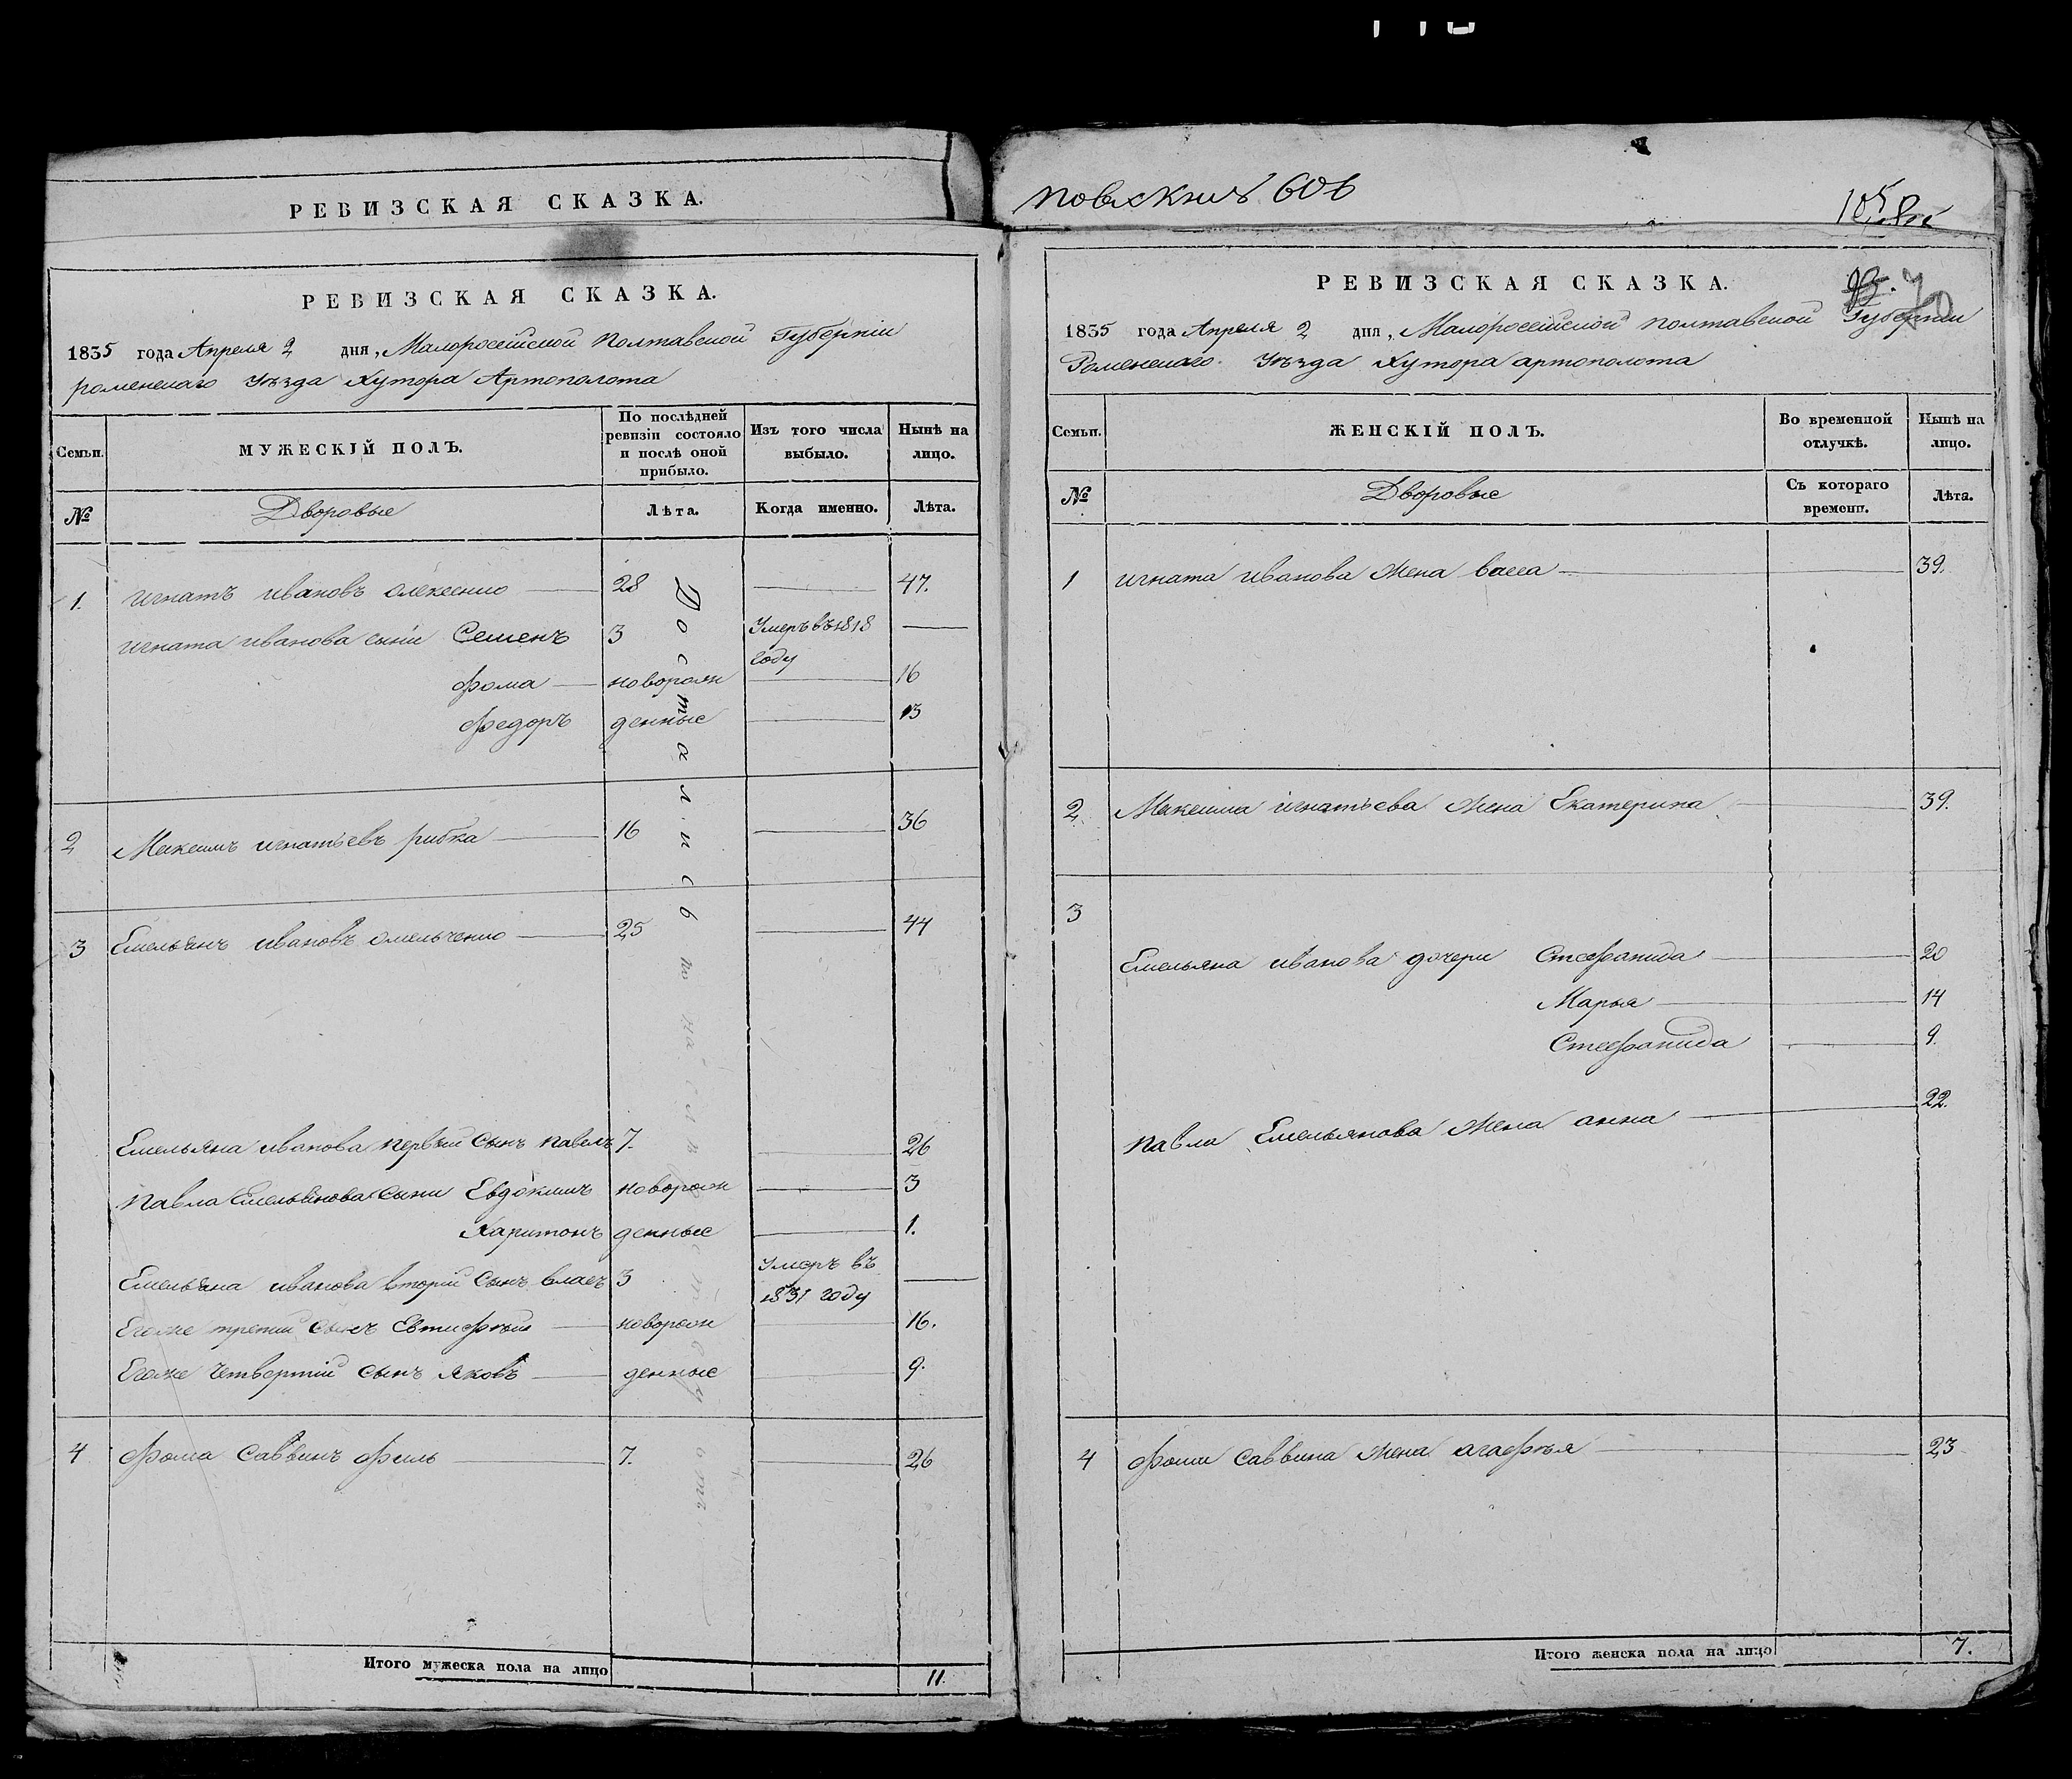 РЕВИЗСКАЯ СКАЗКА.
РЕВИЗСКАЯ СКАЗКА.
1835 года Апреля 2 дня, Малоросейской Полтавской Губернiи
роменскаго Уѣзда Хутора Артополота
Семьи.
МУЖЕСКIЙ ПОЛЪ.
По послѣдней ревизiи состояло и послѣ оной прибыло.
Изъ того числа выбыло.
Нынѣ на лицо.
№
Дворовые
Лѣта.
Когда именно.
Лѣта.
1. игнатъ ивановъ олексенко 28 47.
игната иванова сыни Семенъ 3 Умеръ въ 1818 году
Фома новорож 16
Федоръ денные 13
2 Максимъ игнатьевъ рибка 16 36
3 Емельянъ ивановъ омельченко 25 44
Емельяна иванова первый сынъ павелъ 7. 26
павла Емельянова сыни Евдокимъ новорож 3
Харитонъ денные 1.
Емельяна иванова вторiй сынъ власъ 3 Умеръ въ 1831 году
Егоже третiй сынъ Евтифѣй новорож 16.
Егоже Четвертiй сынъ яковъ денные 9.
4 Фома саввинъ филь 7. 26
Достались по
Итого мужеска пола на лицо 11.
606
105
РЕВИЗСКАЯ СКАЗКА.
1835 года Апреля 2 дня, Малоросейской полтавской Губернiи
Роменскаго Уѣзда Хутора артополота
Семьи.
ЖЕНСКIЙ ПОЛЪ.
Во временной отлучкѣ.
Нынѣ на лицо.
№
Дворовые
Съ котораго времени.
Лѣта.
1 игната иванова жена васса 39.
2 Максима игнатьева жена Екатерина 39.
3
Емельяна иванова дочери Стефанида 20
Марья 14
Стефанида 9.
павла Емельянова жена анна 22.
4 фоми саввина жена агафья 23
Итого женска пола на лицо 7.